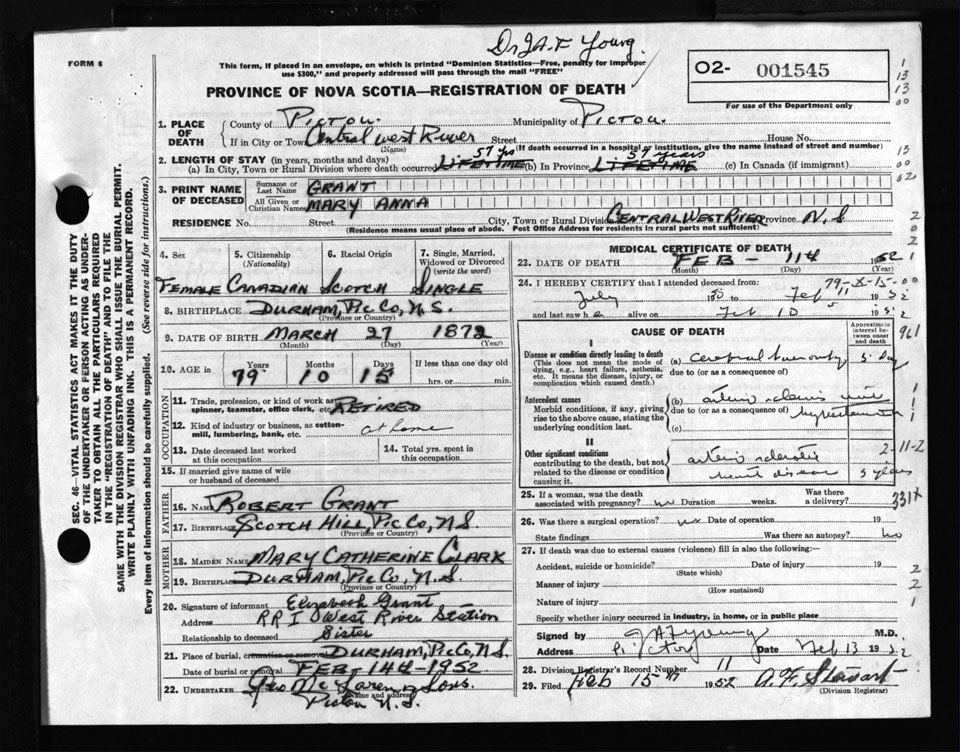 Dr J A F Young.
FORM 6
This form, if placed in an envelope, on which is printed "Dominion Statistics—Free, penalty for improper
use $300," and properly addressed will pass through the mail "FREE"
02- 001545
PROVINCE OF NOVA SCOTIA—REGISTRATION OF DEATH
For use of the Department only
1. PLACE OF DEATH
County of Pictou. Municipality of Pictou.
If in City or Town Central West River Street House No.
(Name) (If death occurred in a hospital or institution, give the name instead of street and number)
2. LENGTH OF STAY (in years, months and days) 57 yrs 57 years
(a) In City, Town or Rural Division where death occurred LIFETIME (b) In Province LIFETIME (c) In Canada (if immigrant)
3. PRINT NAME OF DECEASED
Surname or Last Name GRANT
All Given or Christian Names MARY ANNA
RESIDENCE No. Street City, Town or Rural Division CENTRAL WEST RIVER Province N.S
(Residence means usual place of abode. Post Office Address for residents in rural parts not sufficient)
4. Sex 5. Citizenship (Nationality) 6. Racial Origin 7. Single, Married, Widowed or Divorced (write the word)
FEMALE CANADIAN SCOTCH SINGLE
8. BIRTHPLACE DURHAM, PIC CO, N.S.
(Province or Country)
9. DATE OF BIRTH MARCH 27 1872
(Month) (Day) (Year)
10. AGE in Years Months Days If less than one day
79 10 15 hrs. or min.
OCCUPATION
11. Trade, profession or kind of work as spinner, teamster, office clerk, etc. RETIRED
12. Kind of industry or business, as cotton-mill, lumbering, bank, etc. at home
13. Date deceased last worked at this occupation
14. Total yrs. spent in this occupation
15. If married give name of wife or husband of deceased
FATHER
16. NAME ROBERT GRANT
17. BIRTHPLACE SCOTCH HILL, PIC CO, N.S.
MOTHER
18. MAIDEN NAME MARY CATHERINE CLARK
19. BIRTHPLACE DURHAM, PIC CO, N.S.
(Province or Country)
20. Signature of informant Elizabeth Grant
Address RR 1 West River Station
Relationship to deceased Sister
21. Place of burial, cremation or removal DURHAM, PIC CO, N.S.
Date of burial or removal FEB- 14th-1952
22. UNDERTAKER Geo McLaren & Sons.
(Name and address)
Pictou N.S.
MEDICAL CERTIFICATE OF DEATH
23. DATE OF DEATH FEB - 11th 1952
(Month) (Day) (Year)
24. I HEREBY CERTIFY that I attended deceased from:
July to Feb 1952
and last saw h e alive on Feb 10 195
79-X-15-00
CAUSE OF DEATH
Approximate interval between onset and death
I
Disease or condition directly leading to death
(This does not mean the mode of dying, e.g., heart failure, asthenia, etc. It means the disease, injury, or complication which caused death.)
(a) cerebral 5 day
due to (or as a consequence of)
Antecedent causes
Morbid conditions, if any, giving rise to the above cause, stating the underlying condition last.
(b) arterio
due to (or as a consequence of) hypertension
(c)
II
Other significant conditions
contributing to the death, but not related to the disease or condition causing it.
arterio sclerotic
heart disease 5 years
2-11-2
25. If a woman, was the death associated with pregnancy? no Duration weeks. Was there a delivery?
331X
26. Was there a surgical operation? no Date of operation 19
State findings Was there an autopsy? no
27. If death was due to external causes (violence) fill in also the following:—
Accident, suicide or homicide? Date of injury 19
(State which)
Manner of injury
(How sustained)
Nature of injury
Specify whether injury occurred in industry, in home, or in public place
Signed by J A F Young M.D.
Address Pictou Date Feb 13 1952
28. Division Registrar's Record Number 11
29. Filed Feb 15th 1952 A. F. Stewart
(Division Registrar)
SEC. 46—VITAL STATISTICS ACT MAKES IT THE DUTY
OF THE UNDERTAKER OR PERSON ACTING AS UNDER-
TAKER TO OBTAIN ALL THE PARTICULARS REQUIRED
IN THE "REGISTRATION OF DEATH" AND TO FILE THE
SAME WITH THE DIVISION REGISTRAR WHO SHALL ISSUE THE BURIAL PERMIT.
WRITE PLAINLY WITH UNFADING INK. THIS IS A PERMANENT RECORD.
Every item of information should be carefully supplied. (See reverse side for instructions.)